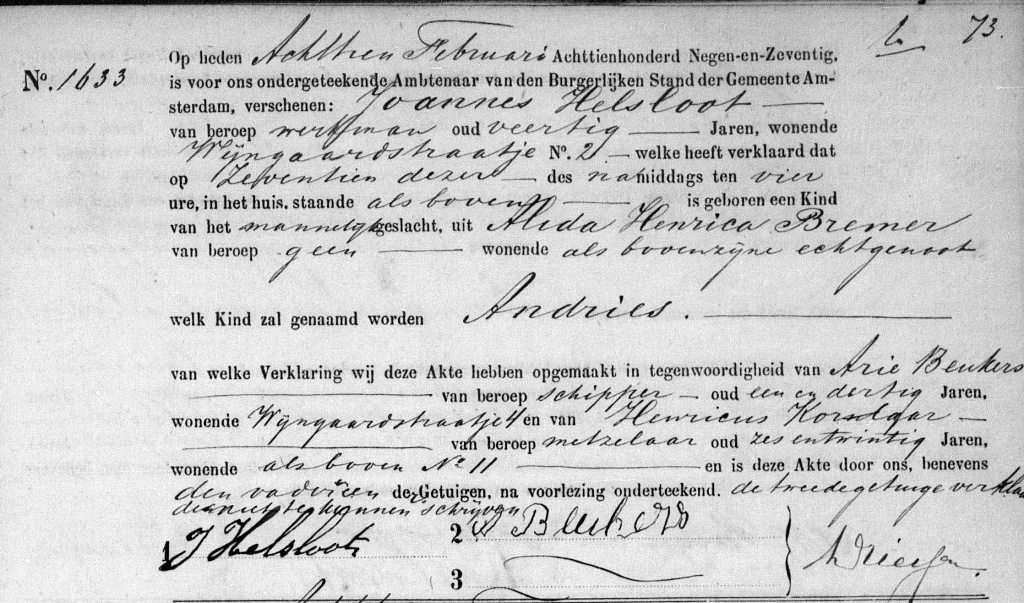 73.
Op heden Achttien Februari Achttienhonderd Negen-en-Zeventig,
No. 1633 is voor ons ondergeteekende Ambtenaar van den Burgerlijken Stand der Gemeente Am-
sterdam, verschenen: Joannes Helsloot
van beroep werkman oud veertig Jaren, wonende
Wijngaardstraatje No. 2 welke heeft verklaard dat
op Zeventien dezer des namiddags ten vier
ure, in het huis, staande als boven is geboren een Kind
van het mannelijk geslacht, uit Alida Henrica Bremer
van beroep geen wonende als boven zijne echtgenoot
welk Kind zal genaamd worden Andries.
van welke Verklaring wij deze Akte hebben opgemaakt in tegenwoordigheid van Arie Beukers
van beroep schipper oud een en dertig Jaren,
wonende Wijngaardstraatje 4 en van Henricus
van beroep metzelaar oud zes en twintig Jaren,
wonende als boven No 11 en is deze Akte door ons, benevens
den vader en de Getuigen, na voorlezing onderteekend. de tweede getuige verklaa
de niet te kunnen schrijven
1 J Helsloot 2 Beukers
3